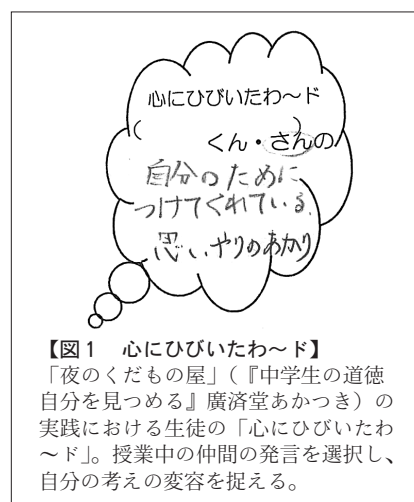 心にひびいたわ～ド
(　　　　　)
くん・さんの
自分のために
つけてくれている
思いやりのあかり
【図1　心にひびいたわ～ド】
「夜のくだもの屋」（『中学生の道徳
自分を見つめる』廣済堂あかつき）の
実践における生徒の「心にひびいたわ
～ド」。授業中の仲間の発言を選択し、
自分の考えの変容を捉える。